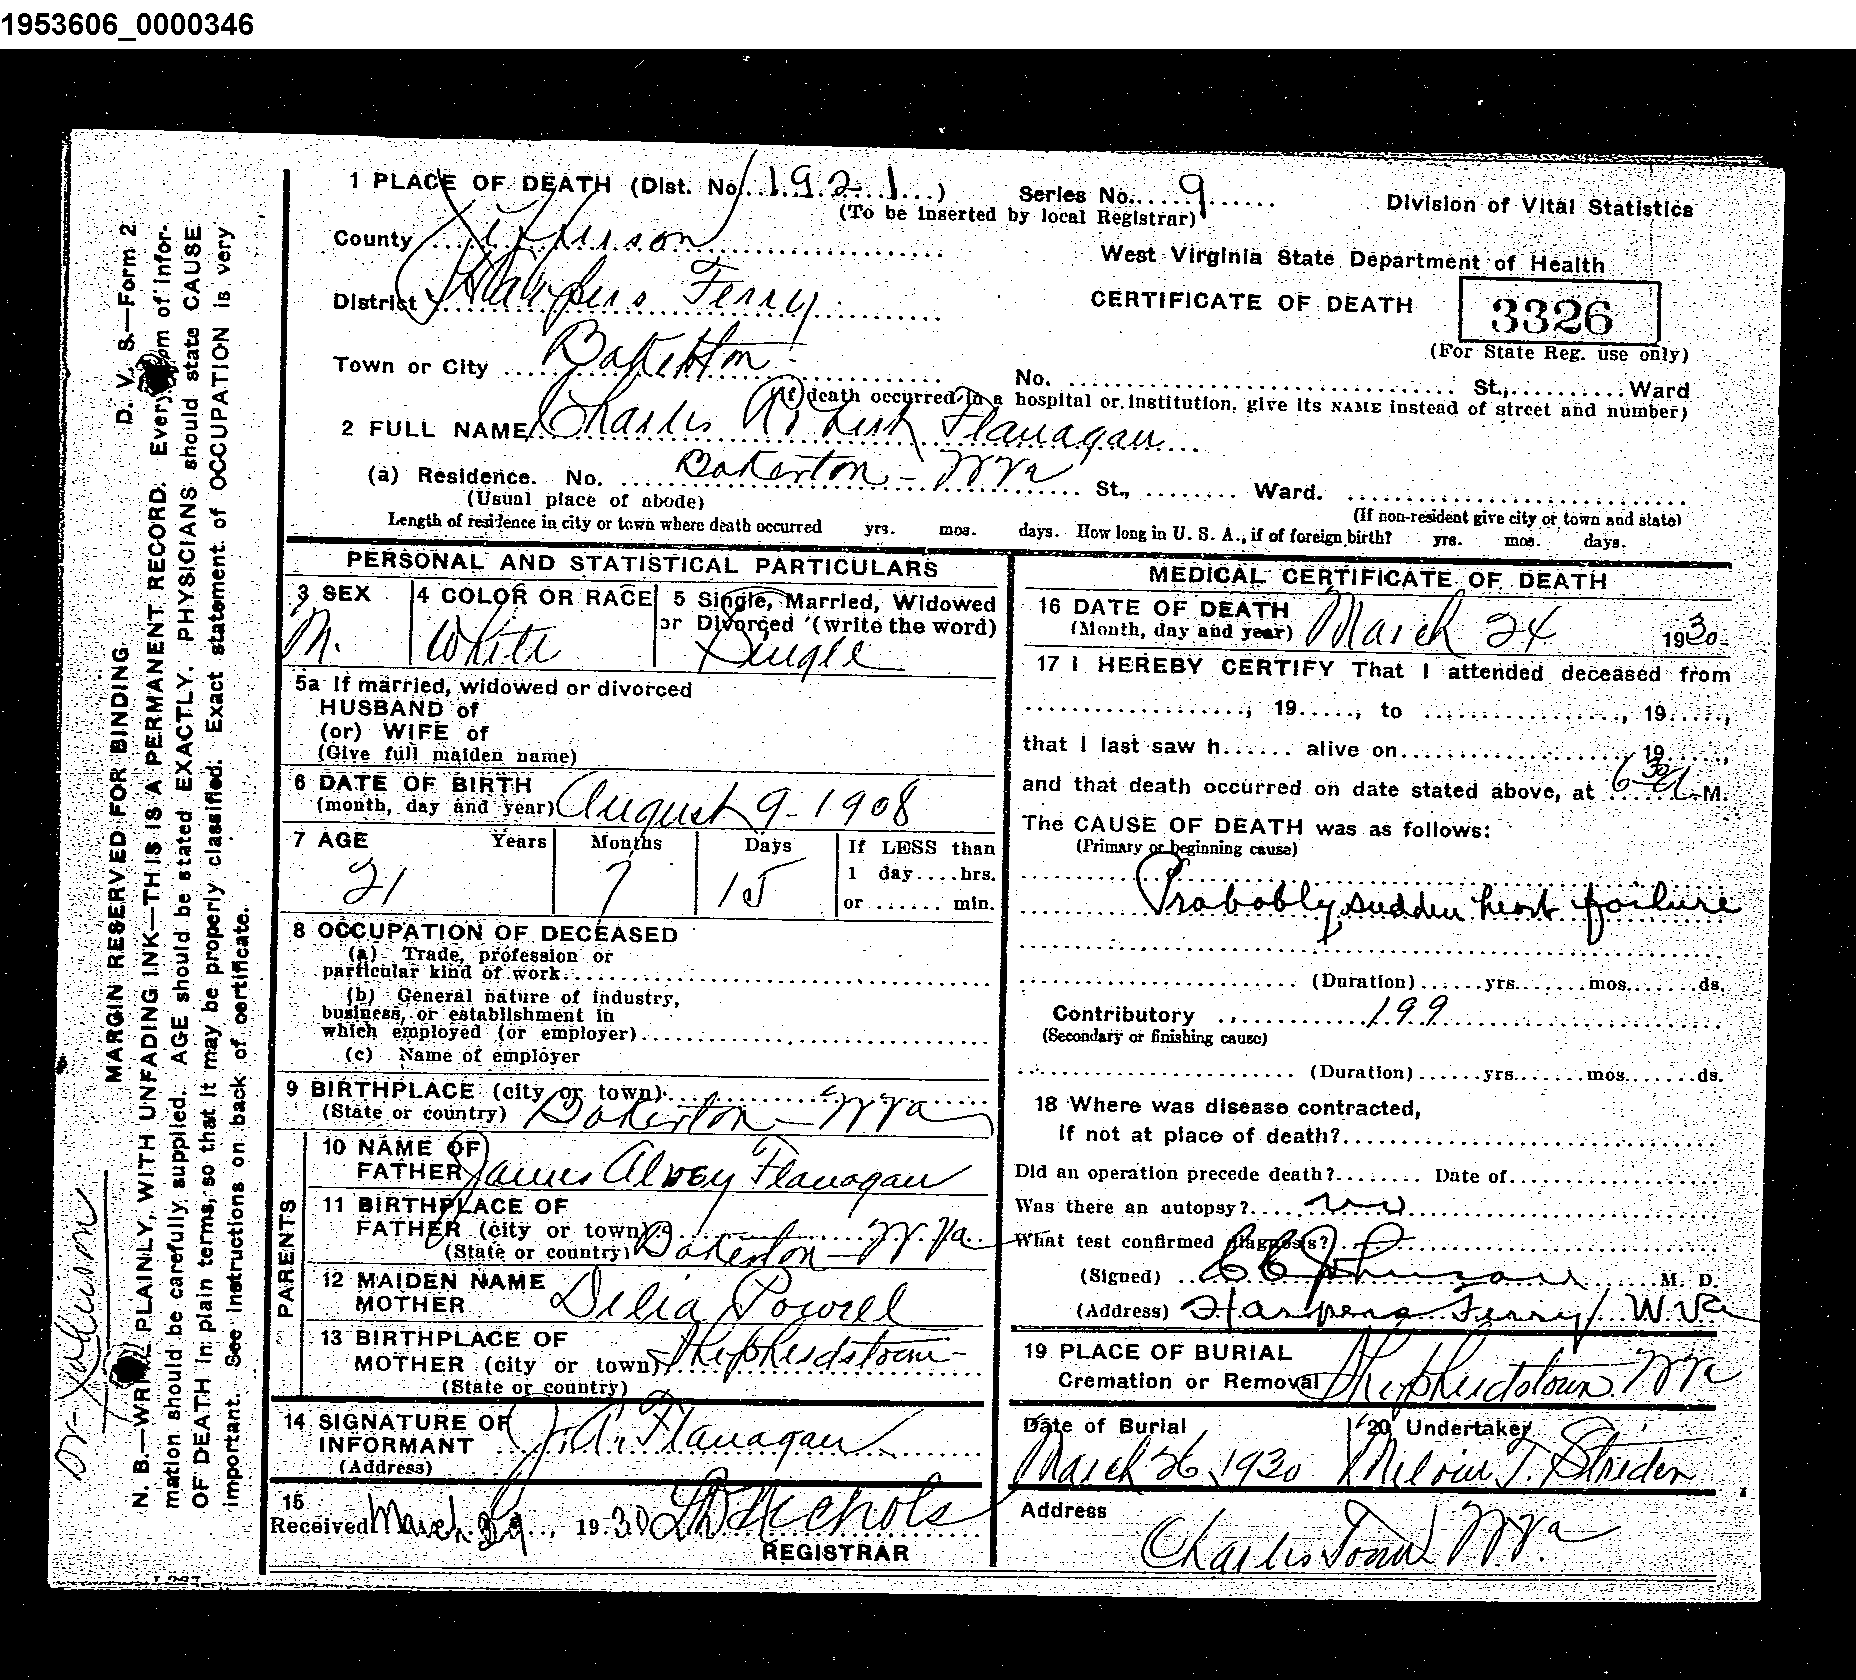 1953606_0000346
1 PLACE OF DEATH (Dist. No. 1921) Series No. 9
(To be inserted by local Registrar)
Division of Vital Statistics
County Jefferson
West Virginia State Department of Health
District Harpers Ferry
CERTIFICATE OF DEATH 3326
(For State Reg. use only)
Town or City Bakerton
No. St., Ward
(If death occurred in a hospital or institution, give its NAME instead of street and number)
2 FULL NAME Charles Flanagan
(a) Residence. No. Bakerton - W Va St., Ward.
(Usual place of abode) (If non-resident give city or town and state)
Length of residence in city or town where death occurred yrs. mos. days. How long in U. S. A., if of foreign birth? yrs. mos. days.
PERSONAL AND STATISTICAL PARTICULARS
3 SEX 4 COLOR OR RACE 5 Single, Married, Widowed
or Divorced (write the word)
M. White Single
5a If married, widowed or divorced
HUSBAND of
(or) WIFE of
(Give full maiden name)
6 DATE OF BIRTH
(month, day and year) August 9 - 1908
7 AGE Years Months Days If LESS than
1 day....hrs.
21 7 15 or ...... min.
8 OCCUPATION OF DECEASED
(a) Trade, profession or
particular kind of work
(b) General nature of industry,
business, or establishment in
which employed (or employer)
(c) Name of employer
9 BIRTHPLACE (city or town)
(State or country) Bakerton - W Va
PARENTS
10 NAME OF
FATHER James Alvey Flanagan
11 BIRTHPLACE OF
FATHER (city or town)
(State or country) Bakerton - W. Va.
12 MAIDEN NAME
MOTHER Delia Powell
13 BIRTHPLACE OF
MOTHER (city or town) Shepherdstown -
(State or country)
14 SIGNATURE OF
INFORMANT J. A. Flanagan
(Address)
15
Received March 29, 1930 Nichols
REGISTRAR
MEDICAL CERTIFICATE OF DEATH
16 DATE OF DEATH
(Month, day and year) March 24 1930
17 I HEREBY CERTIFY That I attended deceased from
, 19....., to , 19.....,
that I last saw h...... alive on 19 ,
and that death occurred on date stated above, at 6 30 A. M.
The CAUSE OF DEATH was as follows:
(Primary or beginning cause)
Probably sudden heart failure
(Duration) yrs. mos. ds.
Contributory 199
(Secondary or finishing cause)
(Duration) yrs. mos. ds.
18 Where was disease contracted,
if not at place of death?
Did an operation precede death? Date of
Was there an autopsy? no
What test confirmed diagnosis?
(Signed) C C Johnson M. D.
(Address) Harpers Ferry W Va
19 PLACE OF BURIAL
Cremation or Removal Shepherdstown W Va
Date of Burial 20 Undertaker
March 26, 1930 Melvin T. Strider
Address
Charles Town W. Va.
D. V. S.—Form 2
MARGIN RESERVED FOR BINDING
N. B.—WRITE PLAINLY, WITH UNFADING INK—THIS IS A PERMANENT RECORD. Every item of infor-
mation should be carefully supplied. AGE should be stated EXACTLY. PHYSICIANS should state CAUSE
OF DEATH in plain terms, so that it may be properly classified. Exact statement of OCCUPATION is very
important. See instructions on back of certificate.
Dr -